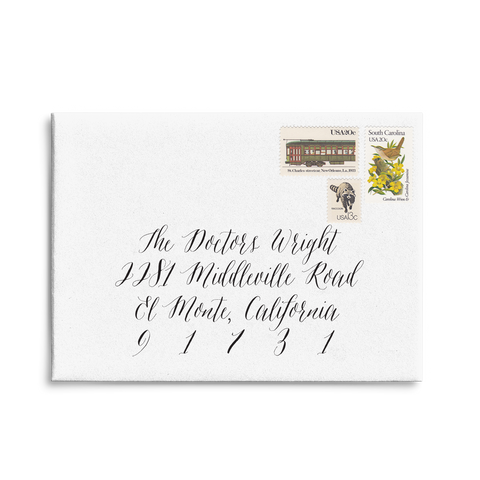 USA20c
St. Charles streetcar, New Orleans, La., 1923
South Carolina
USA 20c
Carolina Wren &
Carolina Jessamine
USA13c
The Doctors Wright
2281 Middleville Road
El Monte, California
9 1 7 3 1